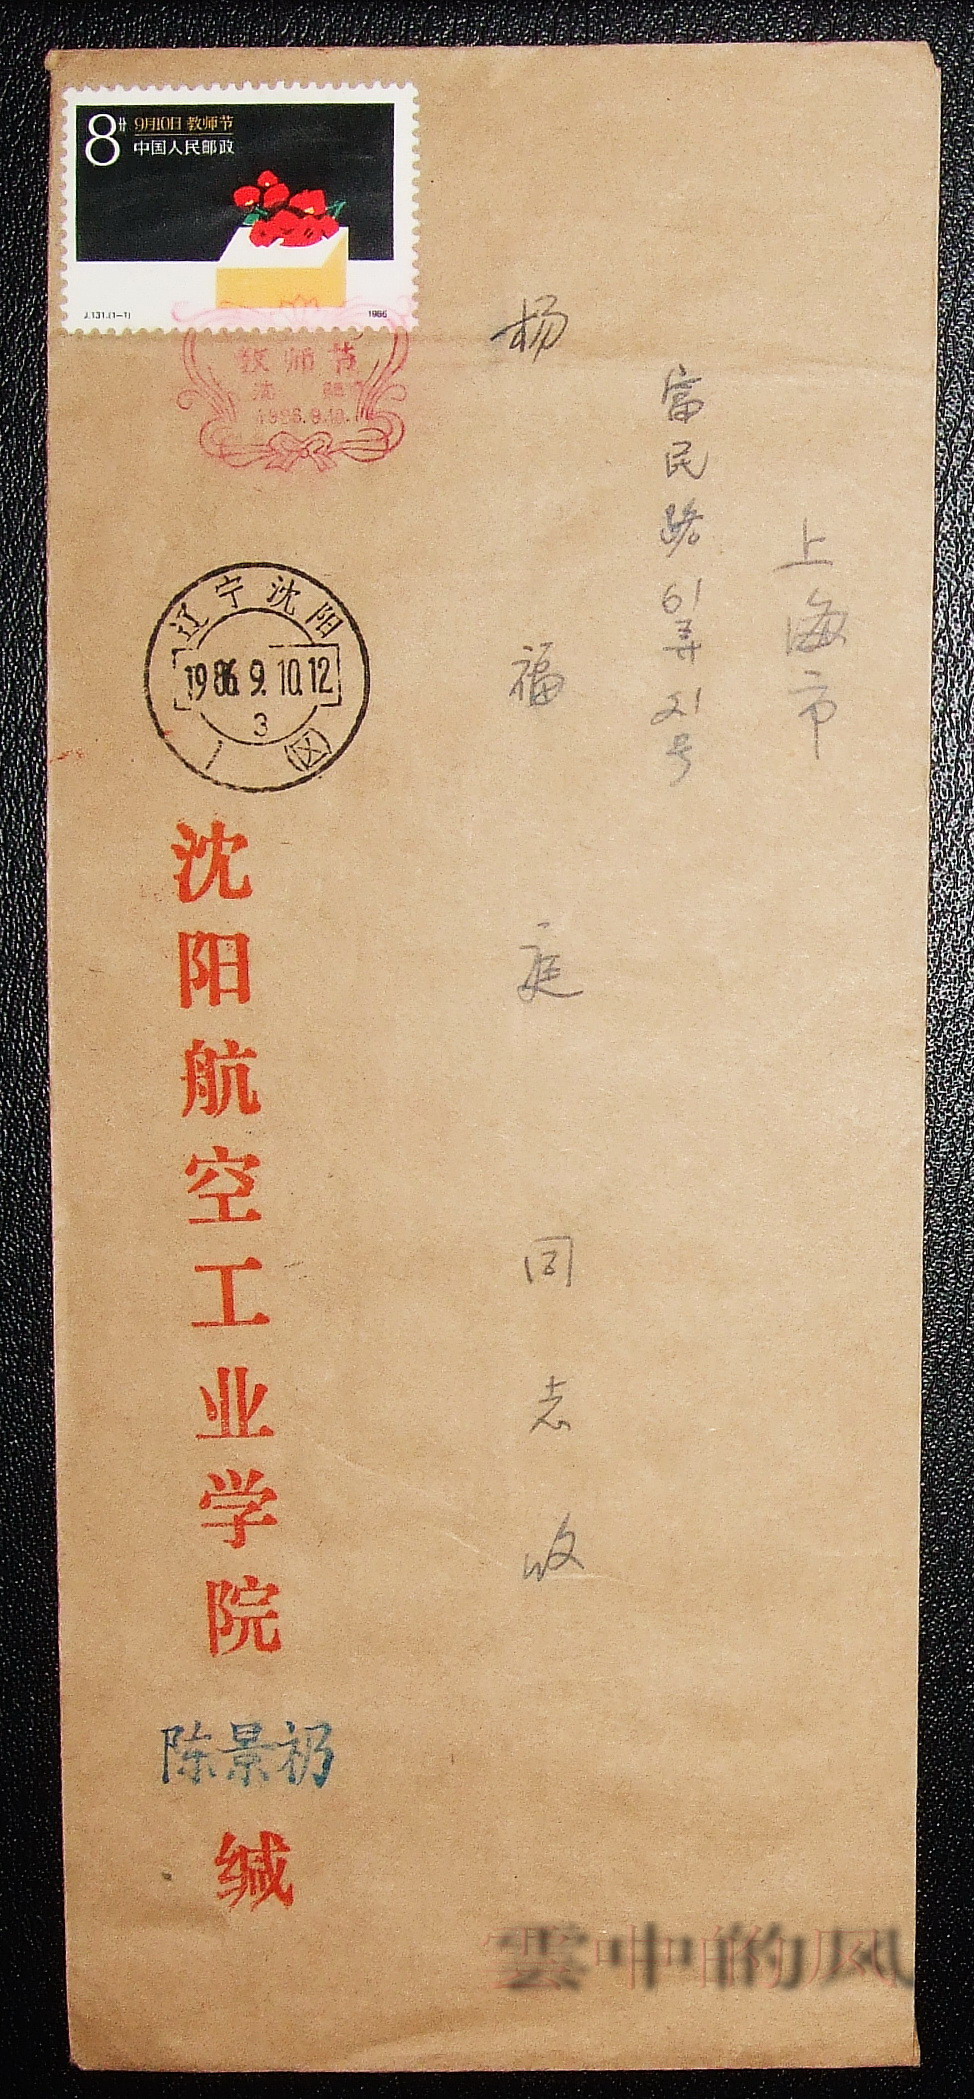 8分
9月10日 教师节
中国人民邮政
J.131.(1-1)
1986
教师节
沈 阳
1986.9.10.
辽宁沈阳
1986.9.10.12
3
一 (区)
上海市
富民路61弄21号
杨福庭同志收
沈阳航空工业学院
陈景礽
缄
雲中的风